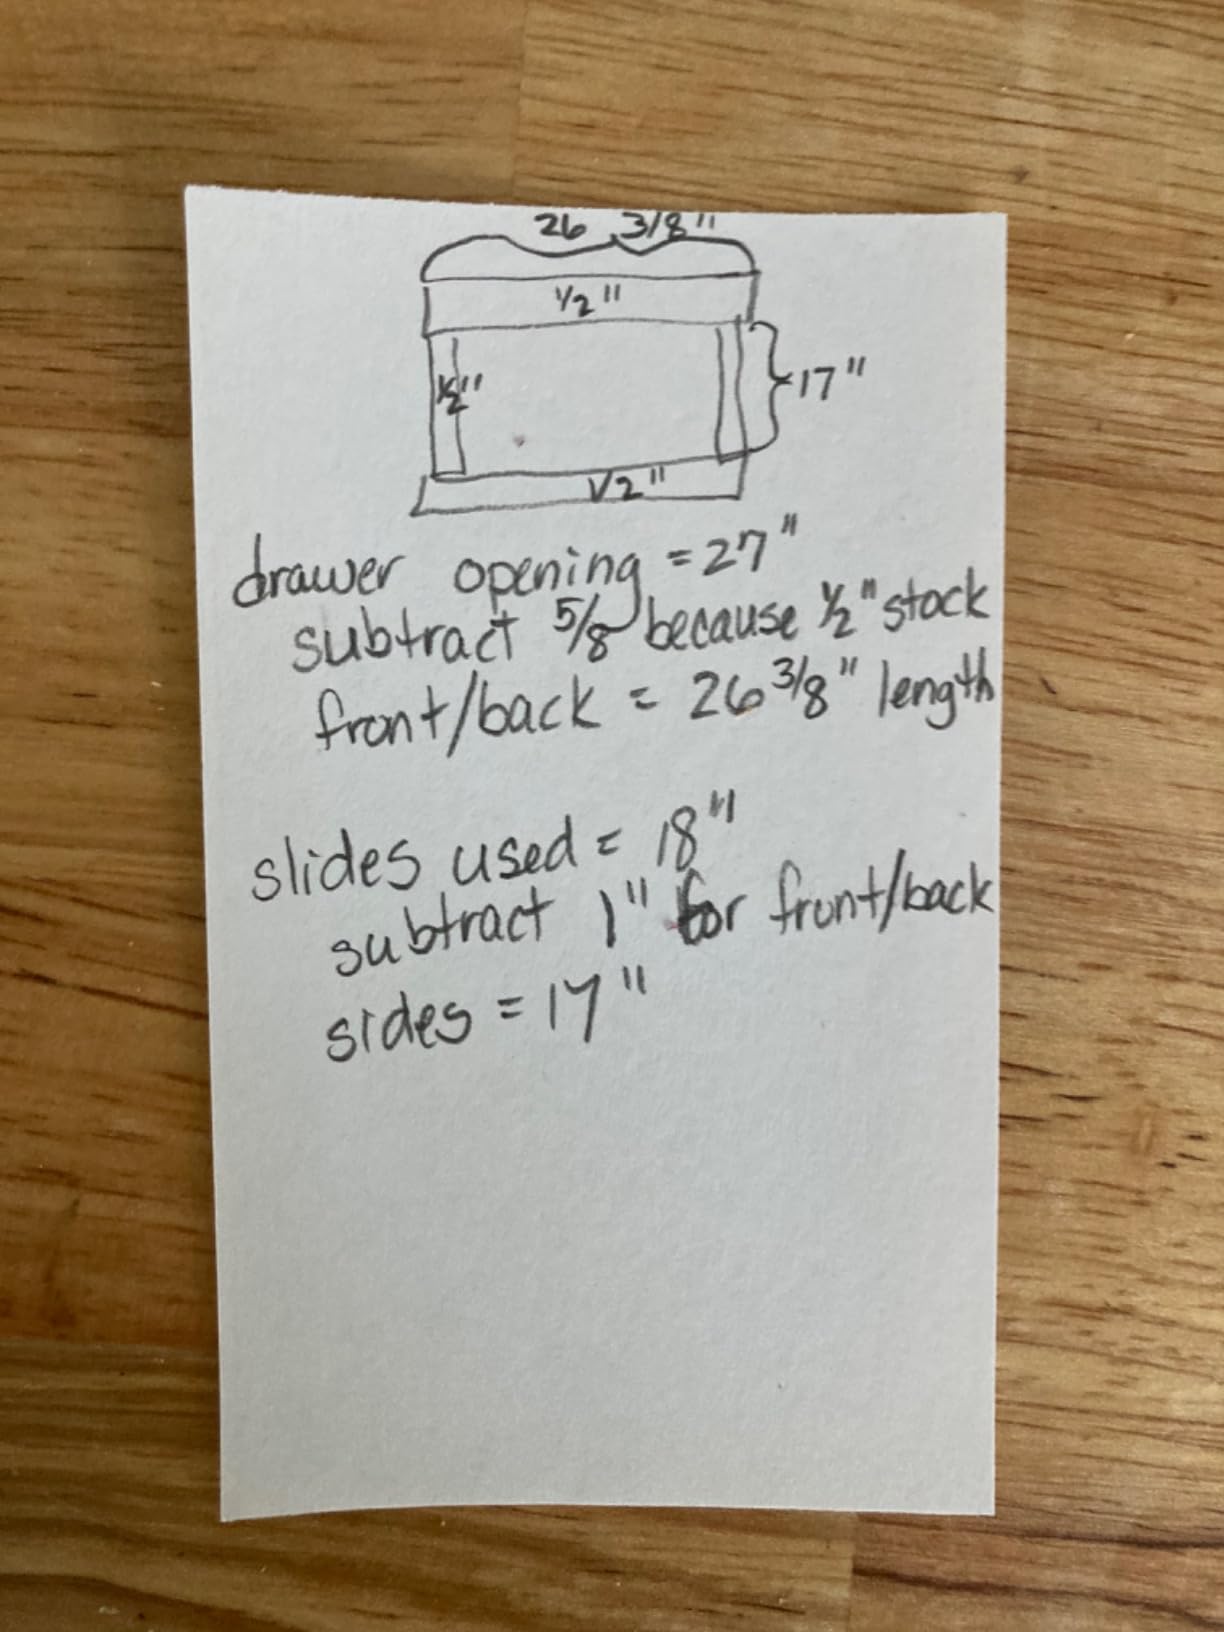 26 3/8"
1/2"
1/2"
17"
1/2"
drawer opening = 27"
subtract 5/8 because 1/2" stock
front/back = 26 3/8" length
slides used = 18"
subtract 1" for front/back
sides = 17"